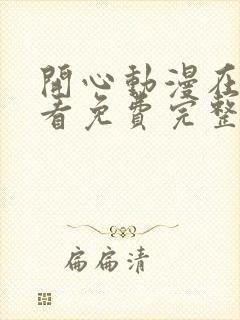 開心動漫在
看免費完整
扁扁清